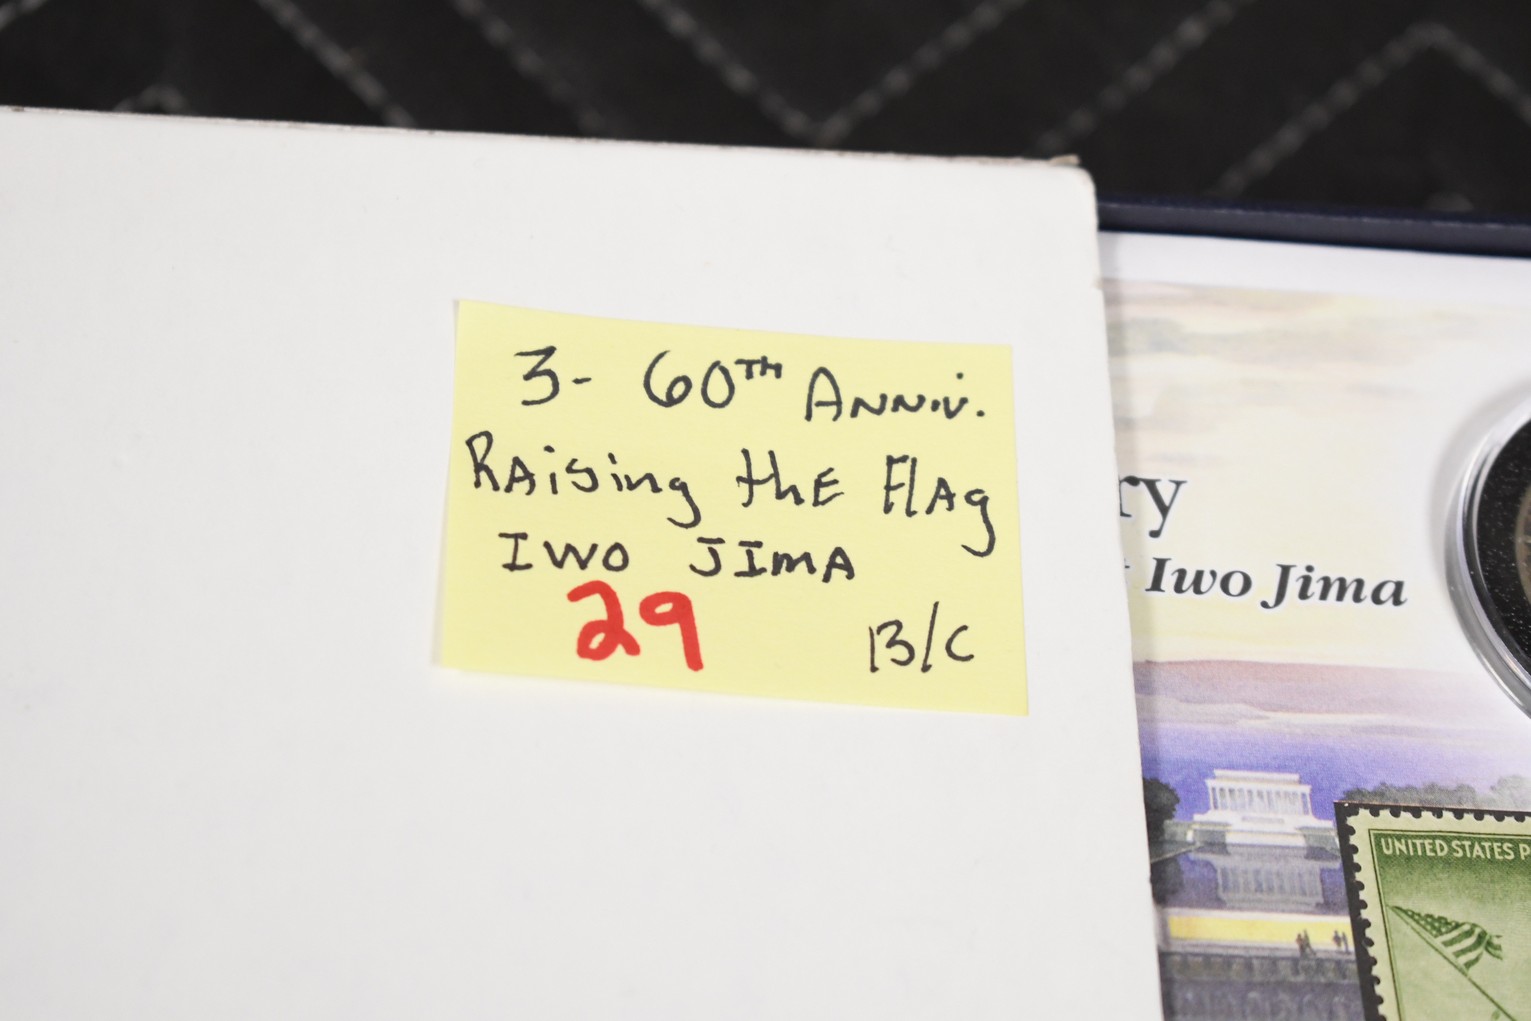 3- 60TH ANNIV.
RAising thE FlAg
IWO JIMA
29 B/C
ry
Iwo Jima
UNITED STATES P